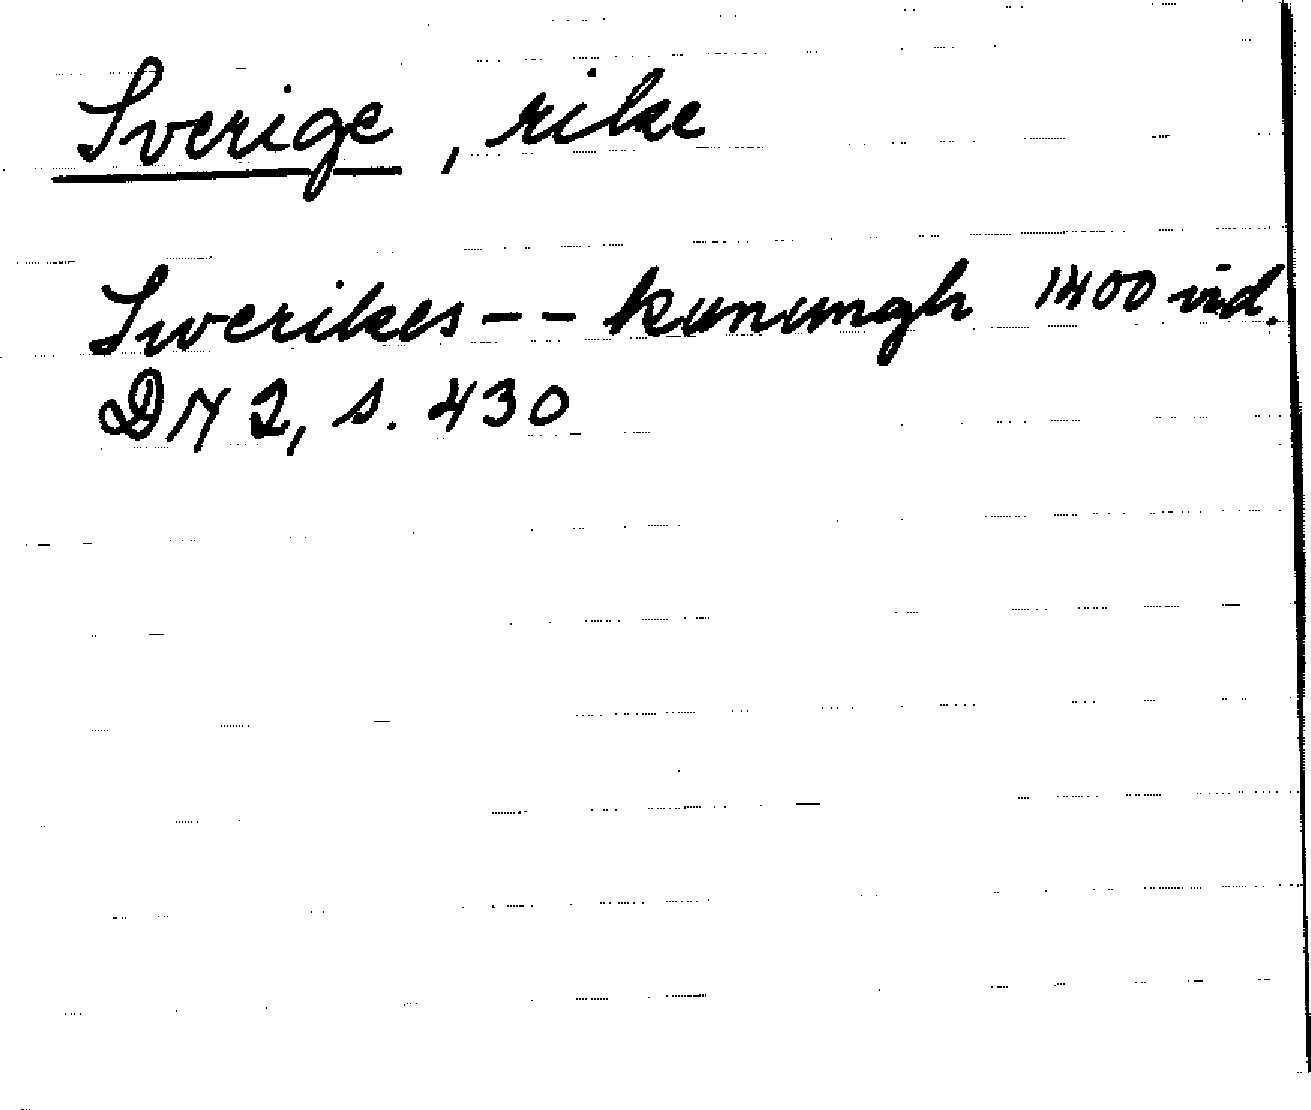 Sverige, rike
Swerikes -- kunungh 1400 vid.
DN 2, s. 430